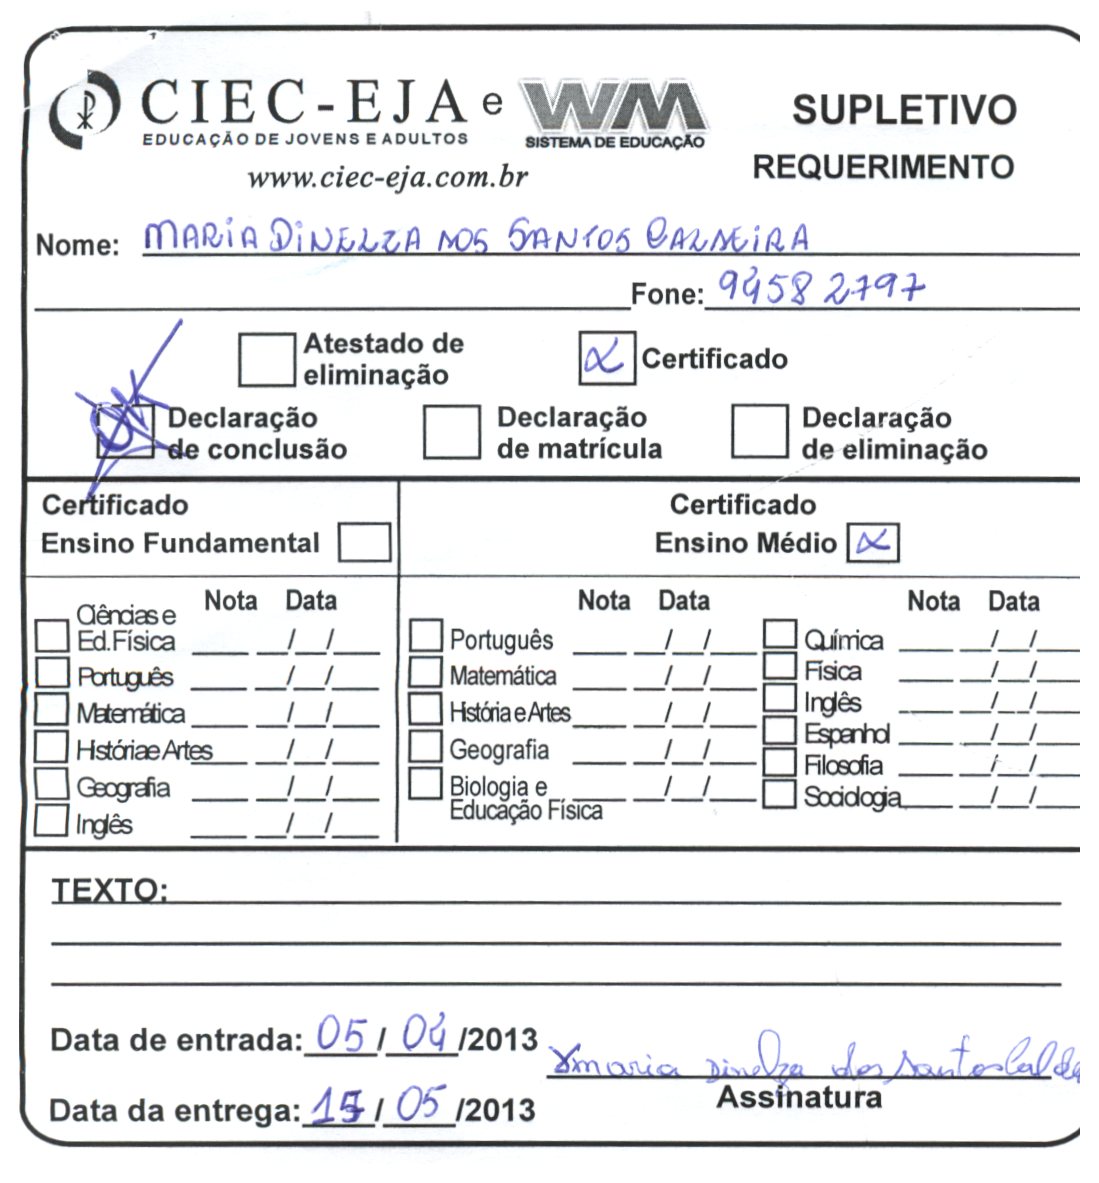 CIEC-EJA e WM
EDUCAÇÃO DE JOVENS E ADULTOS
SISTEMA DE EDUCAÇÃO
www.ciec-eja.com.br
SUPLETIVO
REQUERIMENTO
Nome: MARIA DINELZA DOS SANTOS CALDEIRA
Fone: 9458 2797
Atestado de
eliminação
Certificado
Declaração
de conclusão
Declaração
de matrícula
Declaração
de eliminação
Certificado
Ensino Fundamental
Certificado
Ensino Médio
Nota Data
Ciências e
Ed. Física / /
Português / /
Matemática / /
História e Artes / /
Geografia / /
Inglês / /
Nota Data
Português / /
Matemática / /
História e Artes / /
Geografia / /
Biologia e
Educação Física / /
Nota Data
Química / /
Física / /
Inglês / /
Espanhol / /
Filosofia / /
Sociologia / /
TEXTO:
Data de entrada: 05 / 04 /2013
maria Dinelza dos santos Calde
Assinatura
Data da entrega: 15 / 05 /2013